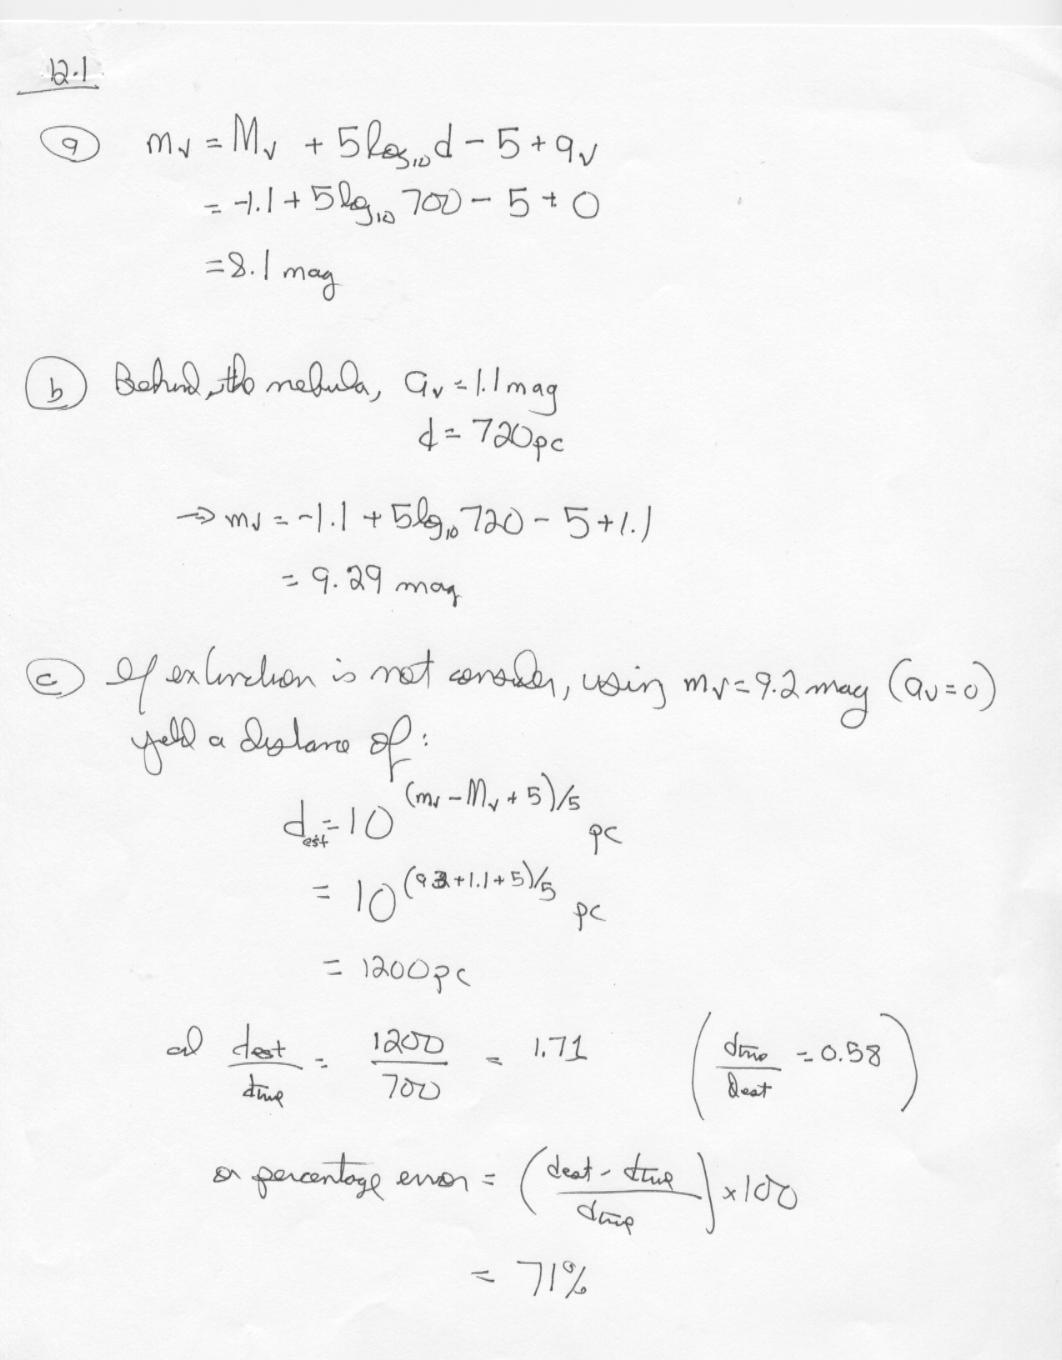 12.1
(a) mv = Mv + 5 log10 d - 5 + av
= -1.1 + 5 log10 700 - 5 + 0
= 8.1 mag
(b) Behind the nebula, av = 1.1 mag
d = 720 pc
⇒ mv = -1.1 + 5 log10 720 - 5 + 1.1
= 9.29 mag
(c) If extinction is not consider, using mv = 9.2 mag (av = 0)
yeld a distane of :
dest = 10^(mv - Mv + 5)/5 pc
= 10^(9.2 + 1.1 + 5)/5 pc
= 1200 pc
ad dest/dtrue = 1200/700 = 1.71 (dtrue/dest = 0.58)
or percentage error = (dest - dtrue/dtrue) × 100
= 71%